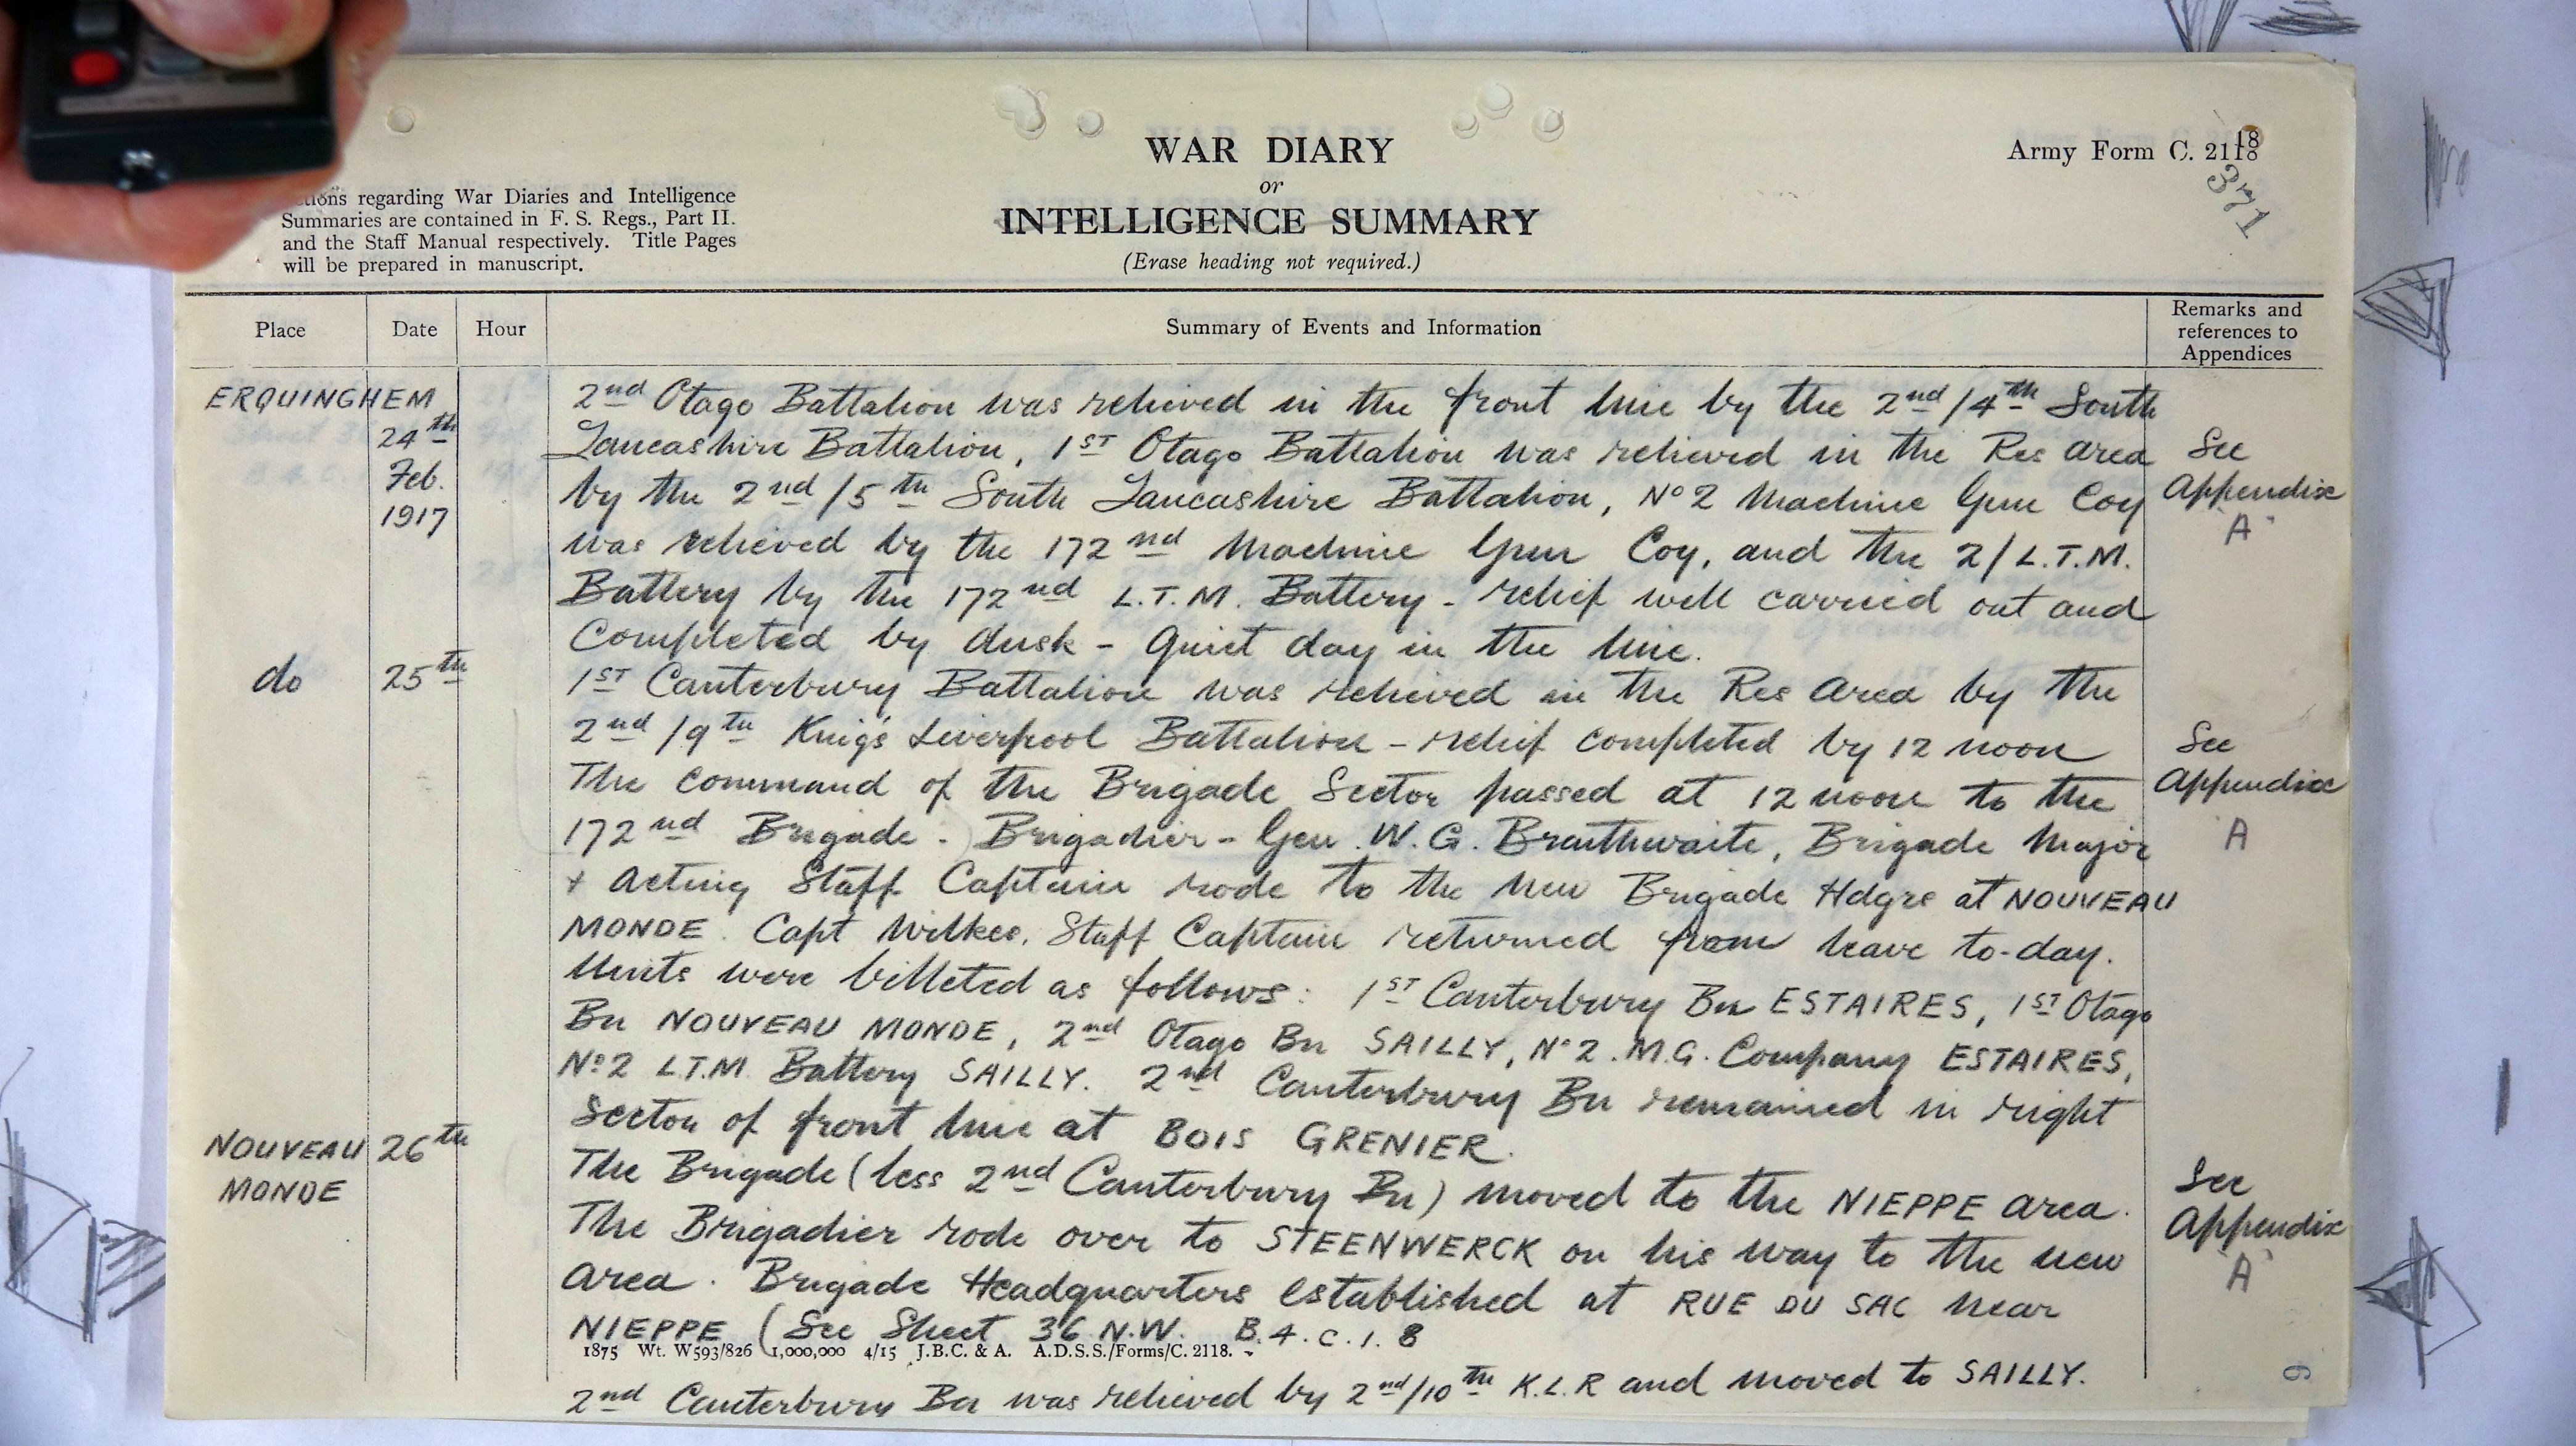 WAR DIARY
or
INTELLIGENCE SUMMARY
(Erase heading not required.)
Army Form C. 2118
18
371
regarding War Diaries and Intelligence
Summaries are contained in F. S. Regs., Part II.
and the Staff Manual respectively. Title Pages
will be prepared in manuscript.
Place Date Hour Summary of Events and Information Remarks and references to Appendices
ERQUINGHEM
24th
Feb.
1917
2nd Otago Battalion was relieved in the front line by the 2nd/4th South
Lancashire Battalion, 1st Otago Battalion was relieved in the Res Area
by the 2nd/5th South Lancashire Battalion, No 2 Machine Gun Coy
was relieved by the 172nd Machine Gun Coy, and the 2/L.T.M.
Battery by the 172nd L.T.M. Battery - relief well carried out and
Completed by dusk - Quiet day in the line.
See
Appendix
"A"
do 25th
1st Canterbury Battalion was relieved in the Res Area by the
2nd/9th King's Liverpool Battalion - relief completed by 12 noon
The command of the Brigade Sector passed at 12 noon to the
172nd Brigade. Brigadier-Gen. W.G. Braithwaite, Brigade Major
+ Acting Staff Captain rode to the new Brigade Hdqrs at NOUVEAU
MONDE. Capt Wilkes, Staff Captain returned from leave to-day.
Units were billeted as follows: 1st Canterbury Bn ESTAIRES, 1st Otago
Bn NOUVEAU MONDE, 2nd Otago Bn SAILLY, No 2. M.G. Company ESTAIRES,
No 2 L.T.M. Battery SAILLY. 2nd Canterbury Bn remained in right
Sector of front line at BOIS GRENIER.
See
Appendix
"A
NOUVEAU 26th
MONDE
The Brigade (less 2nd Canterbury Bn) moved to the NIEPPE area.
The Brigadier rode over to STEENWERCK on his way to the new
area. Brigade Headquarters established at RUE DU SAC near
NIEPPE (See Sheet 36 N.W. B.4.c.1.8
See
Appendix
"A"
1875 Wt. W593/826 1,000,000 4/15 J.B.C. & A. A.D.S.S./Forms/C. 2118.
2nd Canterbury Bn was relieved by 2nd/10th K.L.R and moved to SAILLY.
9